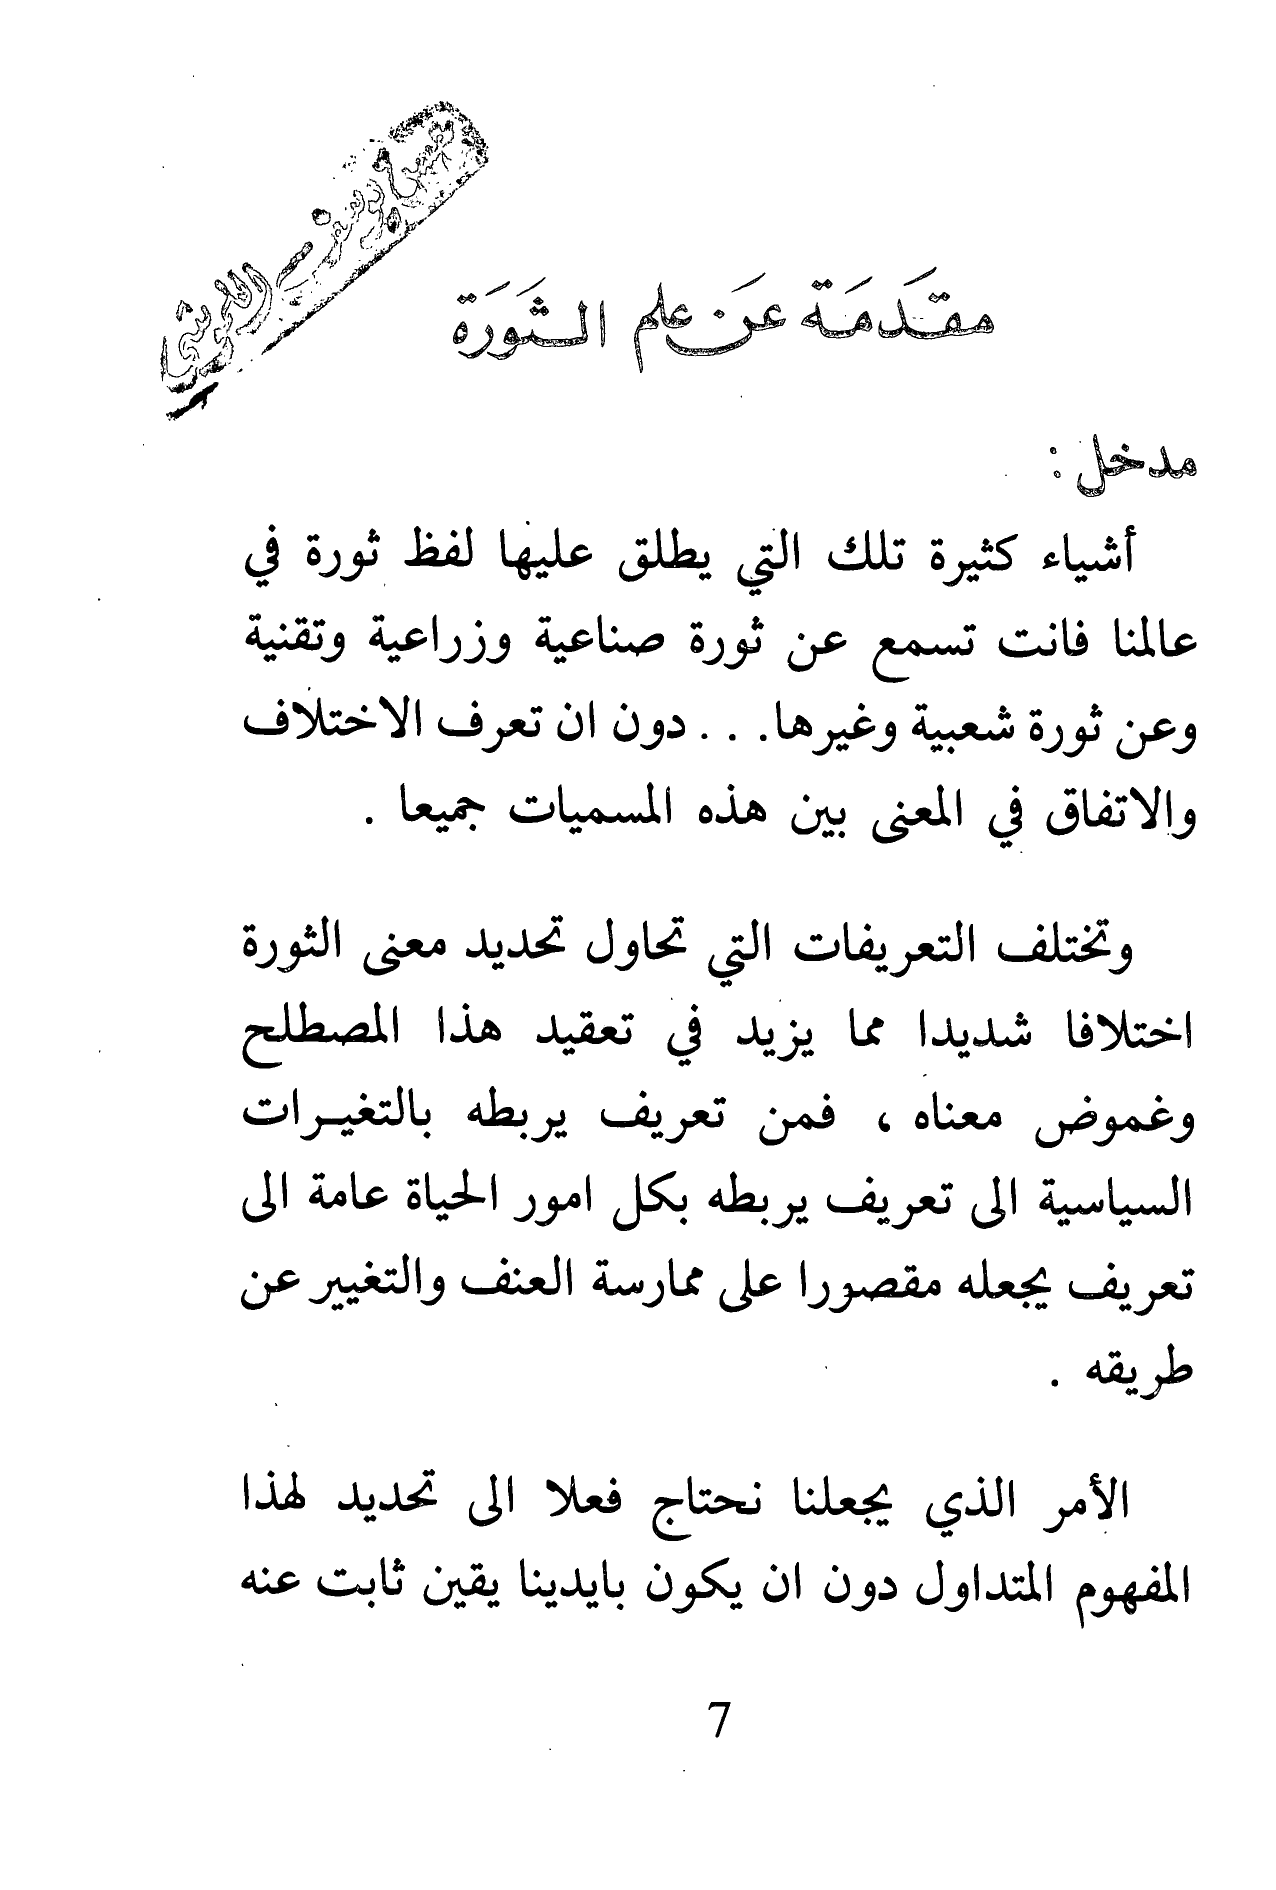 مقدمة عن علم الثورة
مدخل :
أشياء كثيرة تلك التي يطلق عليها لفظ ثورة في
عالمنا فانت تسمع عن ثورة صناعية وزراعية وتقنية
وعن ثورة شعبية وغيرها. . . دون ان تعرف الاختلاف
والاتفاق في المعنى بين هذه المسميات جميعا .
وتختلف التعريفات التي تحاول تحديد معنى الثورة
اختلافا شديدا مما يزيد في تعقيد هذا المصطلح
وغموض معناه ، فمن تعريف يربطه بالتغيرات
السياسية الى تعريف يربطه بكل امور الحياة عامة الى
تعريف يجعله مقصورا على ممارسة العنف والتغيير عن
طريقه .
الأمر الذي يجعلنا نحتاج فعلا الى تحديد لهذا
المفهوم المتداول دون ان يكون بايدينا يقين ثابت عنه
7